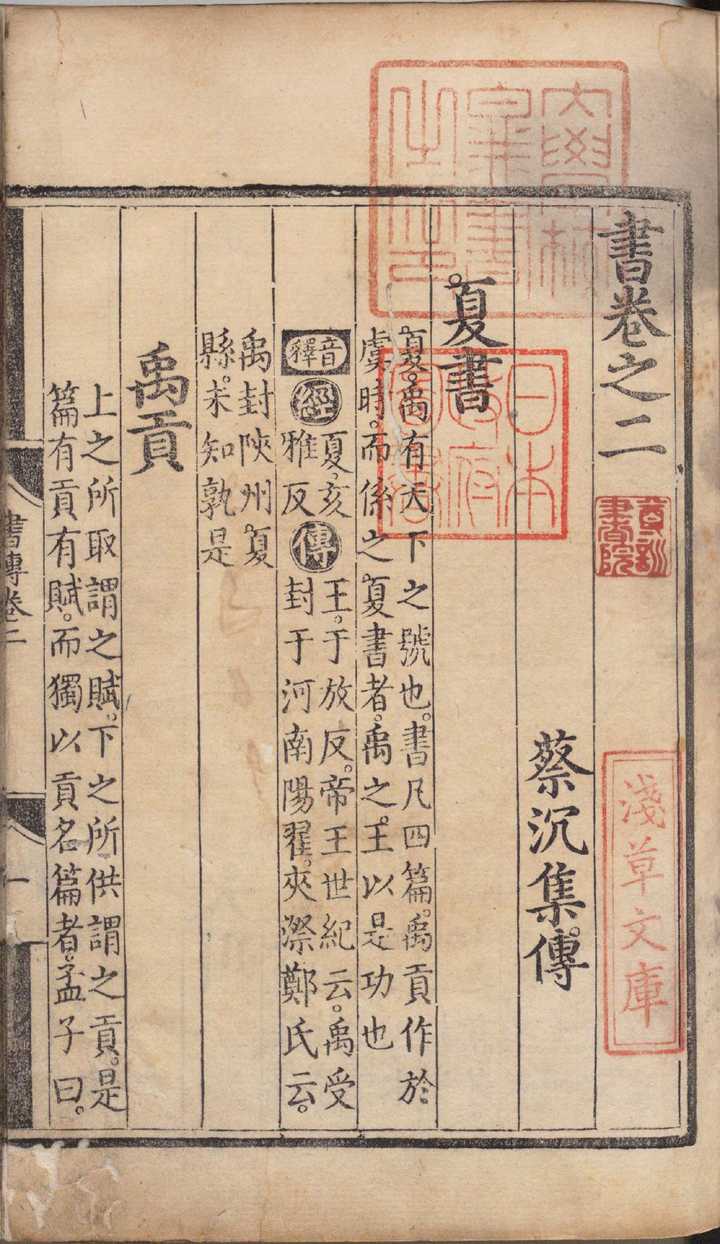 書卷之二
蔡沉集傳
夏書
夏。禹有天下之號也。書凡四篇。禹貢作於
虞時。而係之夏書者。禹之王以是功也
音釋
經
夏亥
雅反
傳
王。于放反。帝王世紀云。禹受
封于河南陽翟。夾漈鄭氏云。
禹封陜州夏
縣。未知孰是
禹貢
上之所取謂之賦。下之所供謂之貢。是
篇有貢有賦。而獨以貢名篇者。孟子曰。
書傳卷二
一
大學校圖書之印
日本政府圖書
淺草文庫